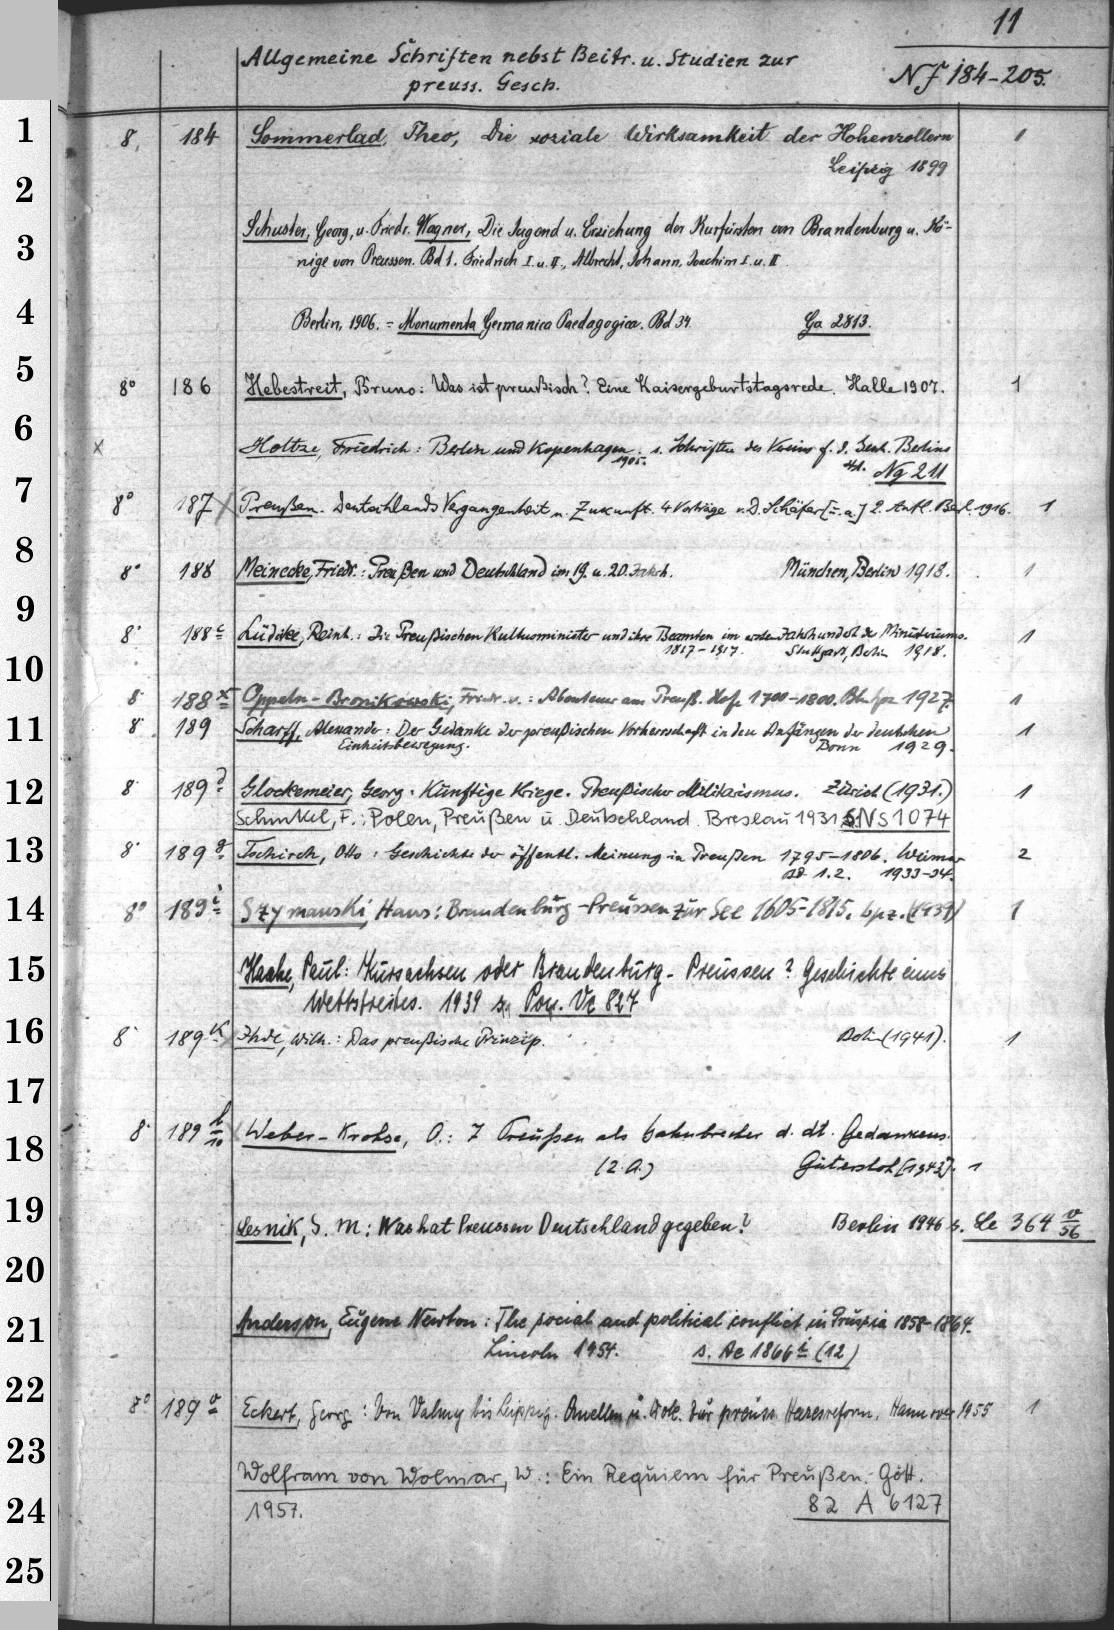 11
Allgemeine Schriften nebst Beitr. u. Studien zur
preuss. Gesch.
NF 184-205.
1
8. 184 Sommerlad, Theo, Die soziale Wirksamkeit der Hohenzollern 1
Leipzig 1899
2
3
Schuster, Georg, u. Friedr. Wagner, Die Jugend u. Erziehung der Kurfürsten von Brandenburg u. Kö-
nige von Preussen. Bd 1. Friedrich I. u. II., Albrecht, Johann, Joachim I. u. II
4
Berlin, 1906. = Monumenta Germaniae Paedagogica. Bd 34. Ga 2813.
5
8° 186 Hebestreit, Bruno: Was ist preußisch? Eine Kaisergeburtstagsrede. Halle 1907. 1
6
x Holtze, Friedrich: Berlin und Kopenhagen. s. Schriften des Vereins f. d. Gesch. Berlins
1905. Ng 211
7
8° 187 Preußen. Deutschlands Vergangenheit u. Zukunft. 4 Vorträge v. D. Schäfer [u. a.] 2. Aufl. Berl. 1916. 1
8
8° 188 Meinecke, Friedr.: Preußen und Deutschland im 19. u. 20. Jahrh. München, Berlin 1918. 1
9
8° 188c Lüdicke, Reinh.: Die Preußischen Kultusminister und ihre Beamten im ersten Jahrhundert des Ministeriums. 1
1817-1917. Stuttgart, Berlin 1918.
10
8° 188x Oppeln-Bronikowski, Friedr. v.: Abenteuer am Preuß. Hofe 1700-1800. Bln 1927. 1
11
8° 189 Scharff, Alexander: Der Gedanke der preußischen Vorherrschaft in den Anfängen der deutschen 1
Einheitsbewegung. Bonn 1929.
12
8° 189d Glockemeier, Georg. Künftige Kriege. Preußischer Militarismus. Zürich (1931.) 1
Schinkel, F.: Polen, Preußen u. Deutschland. Breslau 1931 s. Ns 1074
13
8° 189g Tschirch, Otto: Geschichte der öffentl. Meinung in Preußen 1795-1806. Weimar 2
Bd 1. 2. 1933-34.
14
8° 189i Szymanski, Hans: Brandenburg-Preussen zur See 1605-1815. Lpz. (1939) 1
15
Haake, Paul: Kursachsen oder Brandenburg-Preussen? Geschichte eines
Wettstreites. 1939 s. Pon. Vc 827
16
8° 189k Ihde, Wilh.: Das preußische Prinzip. Berlin (1941). 1
17
8° 189 l/10 Weber-Krohse, O.: 7 Preußen als Bahnbrecher d. dt. Gedankens.
18
(2. A.) Gütersloh [1943]. 1
19
Lesnik, S. M.: Was hat Preussen Deutschland gegeben? Berlin 1946 s. Le 364 v/56
20
21
Anderson, Eugene Newton: The social and political conflict in Prussia 1858-1864.
Lincoln 1954. s. Ae 1866 i (12)
22
8° 189v Eckert, Georg: Von Valmy bis Leipzig. Quellen u. Dok. zur preuss. Heeresreform. Hannover 1955 1
23
Wolfram von Wolmar, W.: Ein Requiem für Preußen. Gött.
24
1957. 82 A 6127
25